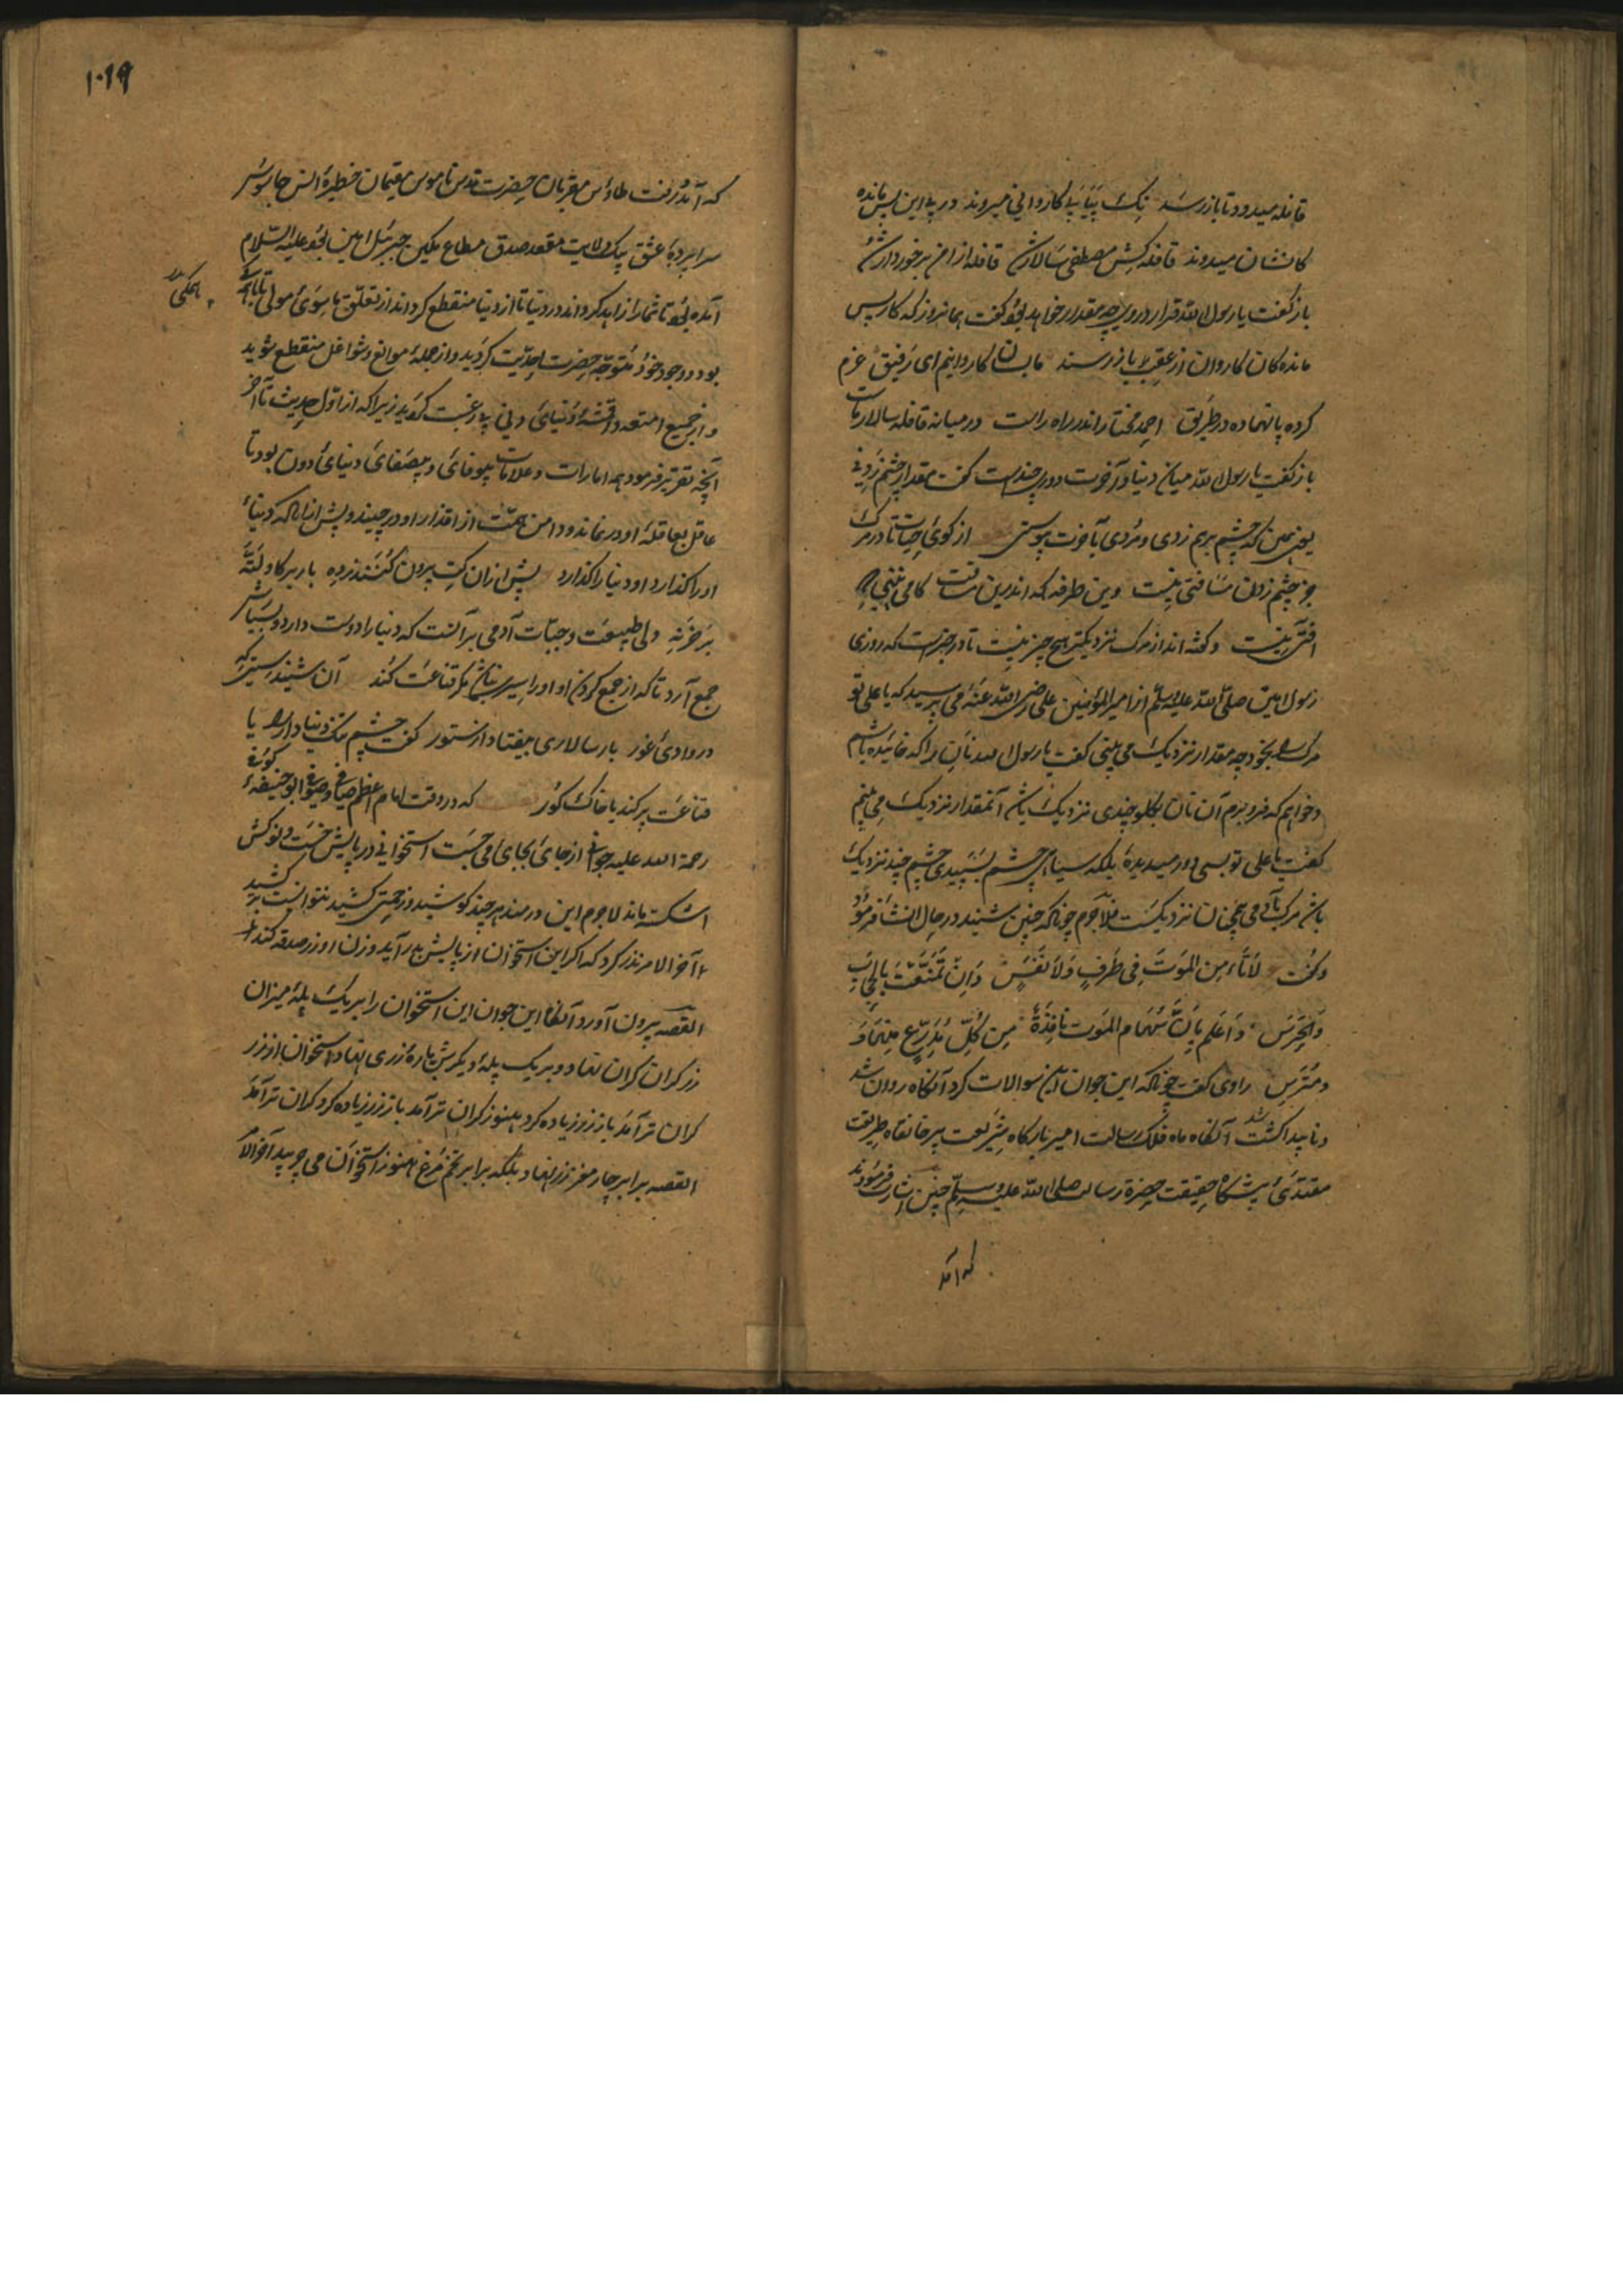 قافله میدود تا باز رسد نک پیاپی کاروانی میروند در پی این پس مانده
کانشان میدوند قافله کش مصطفی سالارش قافله از امن برخوردارش
باز گفت یا رسول الله قرار درو بر چه مقدار خواهد بود گفت همانروز که کار پس
مانده کان کاروان از عقب باز رسند ما بسان کاروانیم ای رفیق عزم
کرده پا نهاده در طریق احمد مختار اندر راه راست در میانه قافله سالار ماست
باز گفت یا رسول الله میان دنیا و آخرت دوری چندست گفت مقدار چشم زدنی
یعنی همین که چشم برهم زدی و مردی بآخرت پیوستی از کوی حیات تا در مرک
جز چشم زدن مسافتی نیست وین طرفه که اندرین مسافت کامی بنهی
نیست و گفته اند از مرک نزدیکتر هیچ چیز نیست تا در خبرست که روزی
رسول امین صلی الله علیه وسلم از امیر المؤمنین علی رضی الله عنه می پرسید که یا علی تو
مرک را بخود چه مقدار نزدیک می بینی گفت یا رسول الله نان را که خائیده باشم
و خواهم که فرو برم آن نان بکلو چندی نزدیک باشد آنمقدار نزدیک می بینم
گفت یا علی تو بسی دور میدیدهٔ بلکه سیاهی چشم بسپیدی چشم چند نزدیک
باشد مرک بآدمی همچنان نزدیکست فلاجرم چونکه چنین شنید در حال انشا فرمود
و گفت لا تأمن الموت فی طرف ولا نفس وان تمنعت بالحاجب
والحرس واعلم بان سهام الموت نافذة من کل مدرع منها و
ومترس راوی گفت چونکه این جوان این سوالات کرد آنگاه روان شد
و ناپیدا گشت آنگاه ماه فلک رسالت امیر بارگاه شریعت پیر خانقاه طریقت
مقتدای پیشگاه حقیقت حضرة رسالت صلی الله علیه وسلم چنین اشارت فرمودند
که آمد
۱۰۱۹
که آمد و رفت طاوس مقربان حضرت قدس ناموس مقیمان خطیرهٔ انس جاسوس
سراپردهٔ عشق پیک ولایت مقعد صدق مطاع مکین جبرئیل امین بود علیه السلام
آمده بود تا شما را زاهد کرداند در دنیا تا از دنیا منقطع کرداند از تعلق ما سوی مولی تا
بهمکی
بود و وجود خود متوجه حضرت احدیت کردید و از جملهٔ موانع و شواغل منقطع شوید
و از جمیع امتعه و اقمشهٔ دنیای دنی بی رغبت کردید زیرا که از اول حدیث تا آخر
آنچه تقریر فرمود همه امارات و علامات بیوفائی و بیصفائی دنیای دون بود تا
عاقل بعاقلهٔ او در نماند و دامن همت از اقذار او در چیند و پیش از آنکه دنیا
او را گذارد او دنیا را گذارد پیش ازان کت برون کنند ز ده بار بر کاو نه
بر خر نه ولی طبیعت و جبلت آدمی بر آنست که دنیا را دوست دارد و بسیارش
جمع آرد تا که از جمع کردن او او را سیری نباشد مکر قناعت کند آن شنیدستی که
در وادی غور بار سالاری بیفتاد از ستور گفت چشم تنک دنیا دار را یا
قناعت پر کند یا خاک گور که در وقت امام اعظم صافی و صوفی ابو حنیفهٔ کوفی
رحمة الله علیه جوانی از جای بجای می جست استخوانی در پایش خست و نوکش
شکسته ماند لاجرم این درمند هر چند کوشید و زحمتی کشید نتوانست بر کشید
آخر الامر نذر کرد که اگر این استخوان از پایش بدر آید وزن او زر صدقه کند
القصه بیرون آورد آنگاه این جوان این استخوان را بر یک پلهٔ میزان
زر کران کران نهاد و بر یک پلهٔ دیگرش پارهٔ زری نهاد استخوان از زر
کران تر آمد باز زر زیاده کرد هنوز کران تر آمد باز زر زیاده کرد کران تر آمد
القصه برابر چار مغز زر نهاد بلکه برابر تخم مرغ هنوز استخوان می چربید آخر الا